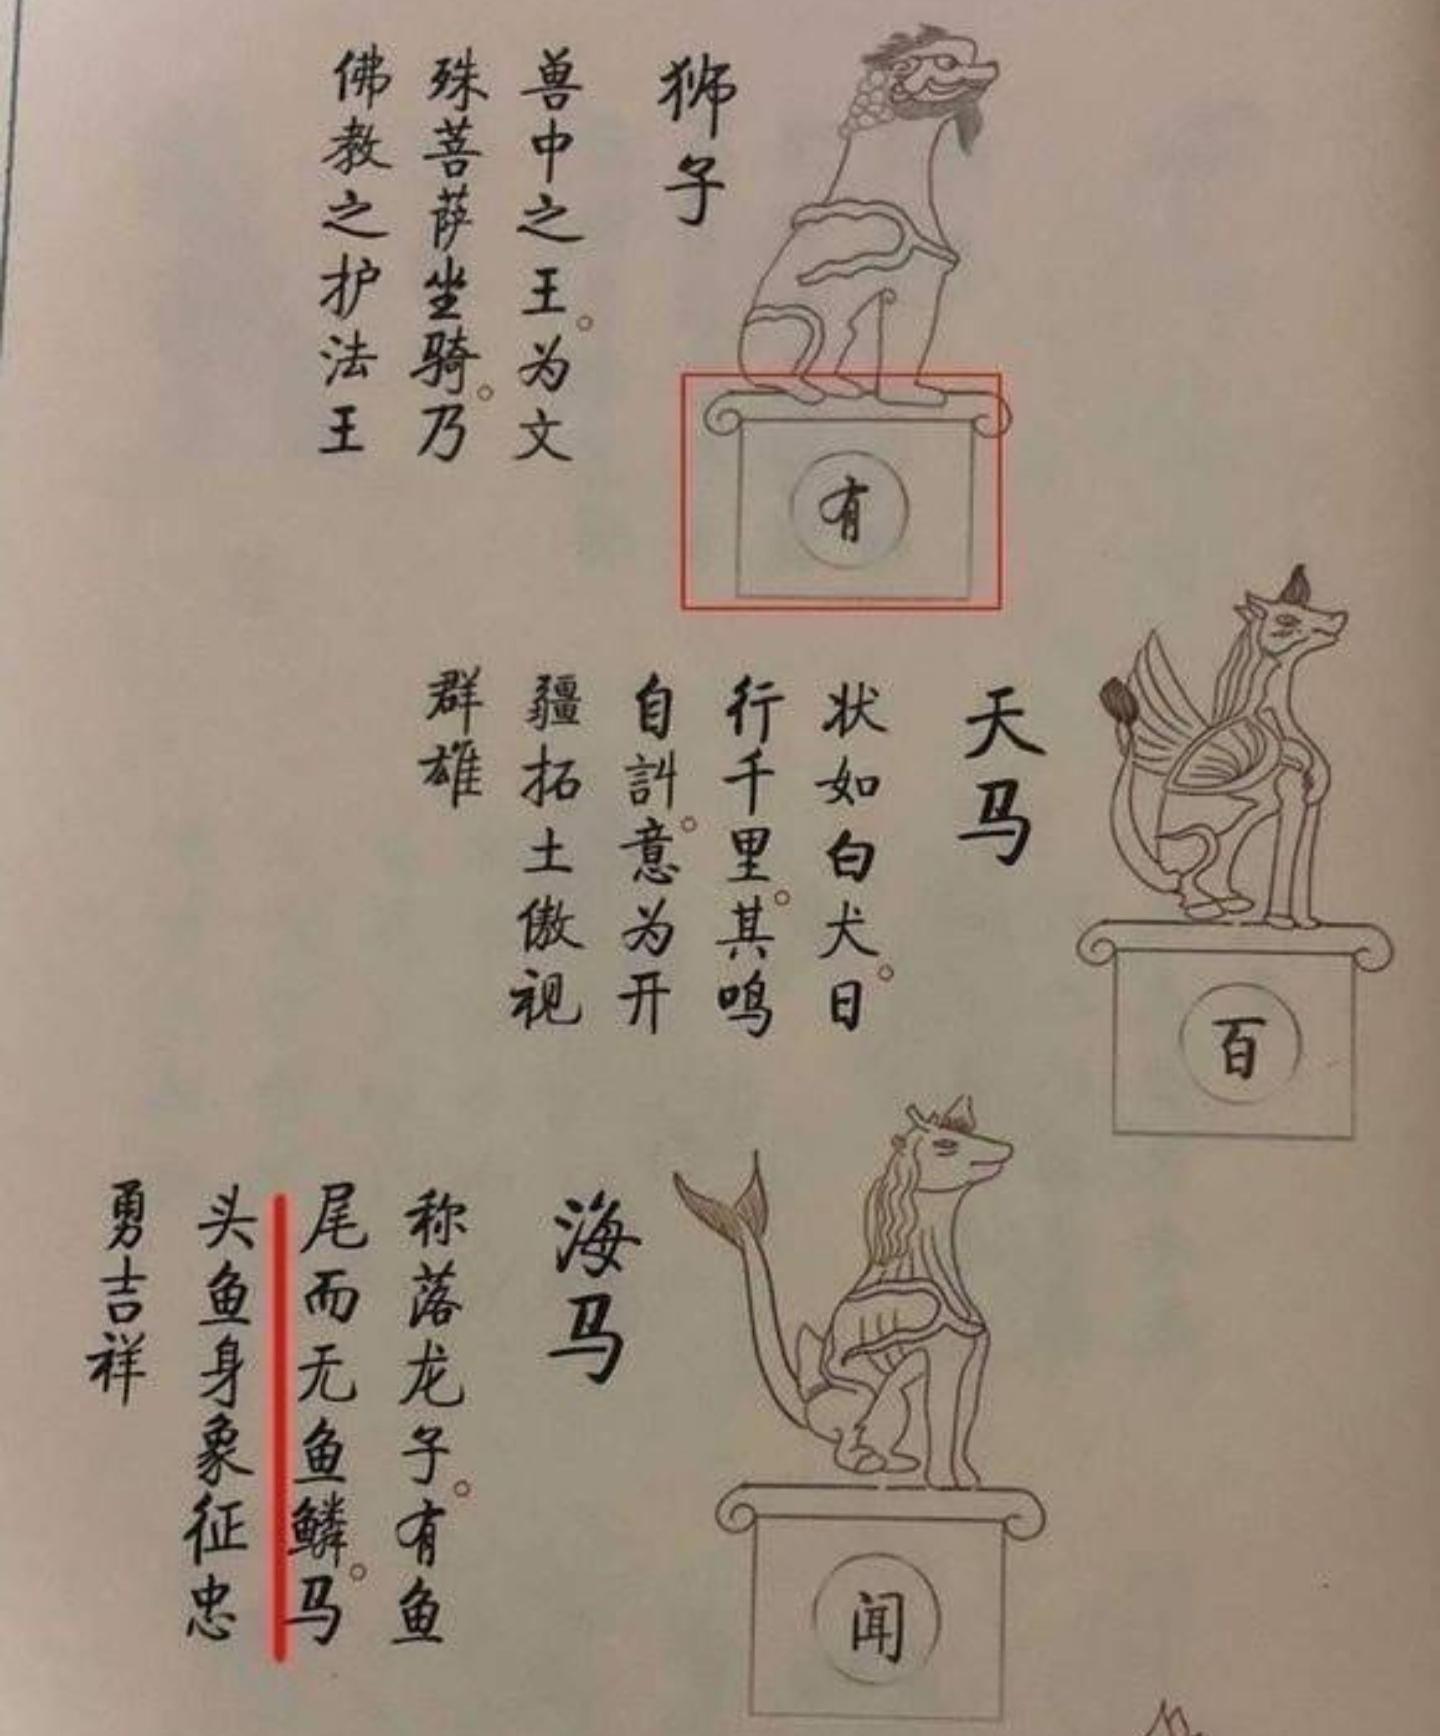 狮子
兽中之王。为文
殊菩萨坐骑。乃
佛教之护法王
有
天马
状如白犬。日
行千里。其鸣
自訆。意为开
疆拓土傲视
群雄
百
海马
称落龙子。有鱼
尾而无鱼鳞。马
头鱼身象征忠
勇吉祥
闻